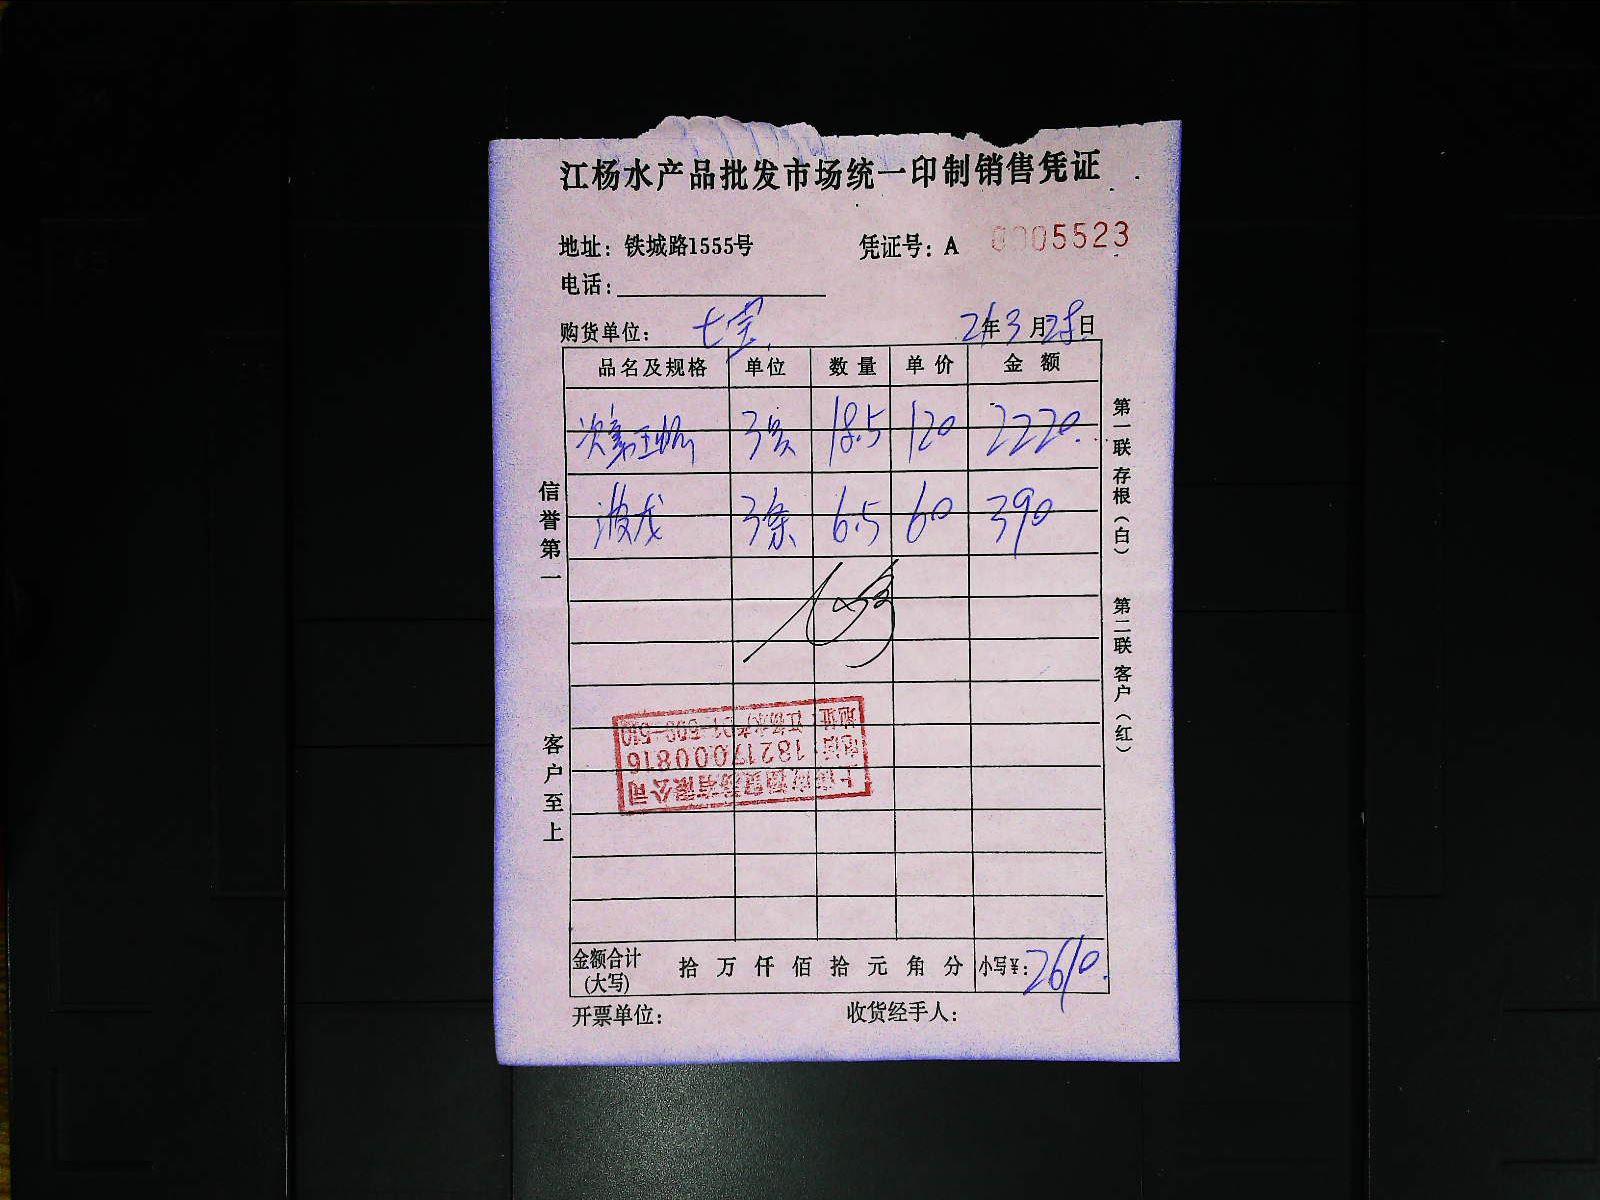 江杨水产品批发市场统一印制销售凭证
地址：铁城路1555号 凭证号：A 0005523
电话：
购货单位： 七宝 21年3月28日
品名及规格 单位 数量 单价 金额
3只 18.5 120 2220.
波龙 3条 6.5 60 390
信誉第一
客户至上
第一联 存根（白） 第二联 客户（红）
电话：18217000816
金额合计（大写） 拾 万 仟 佰 拾 元 角 分 小写¥：2610.
开票单位： 收货经手人：